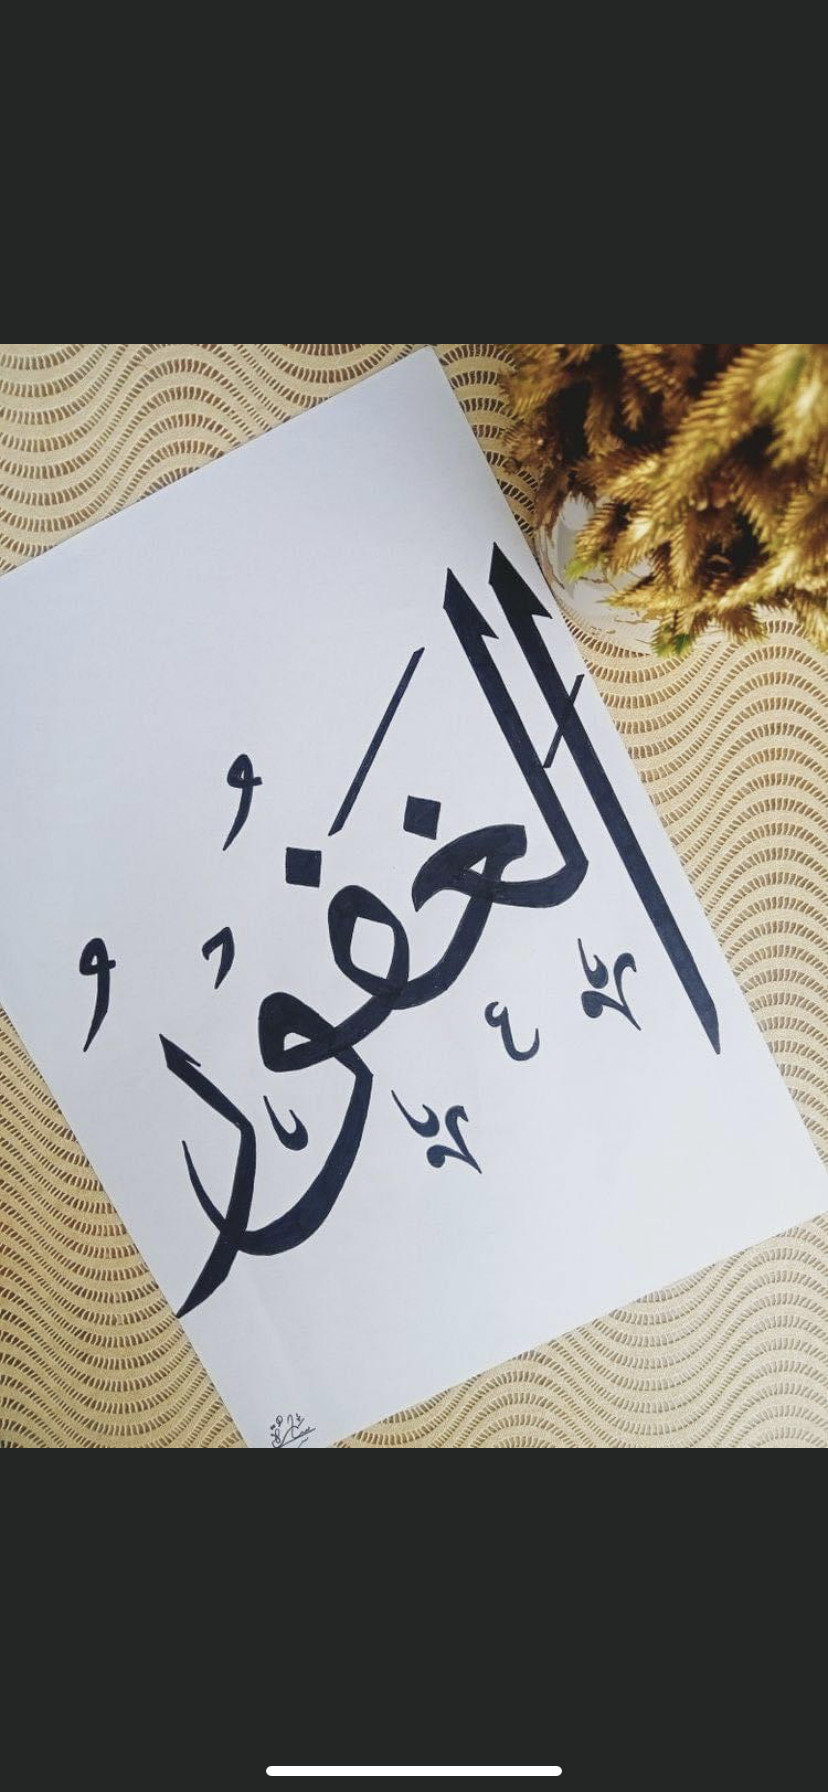 الغَفُورُ